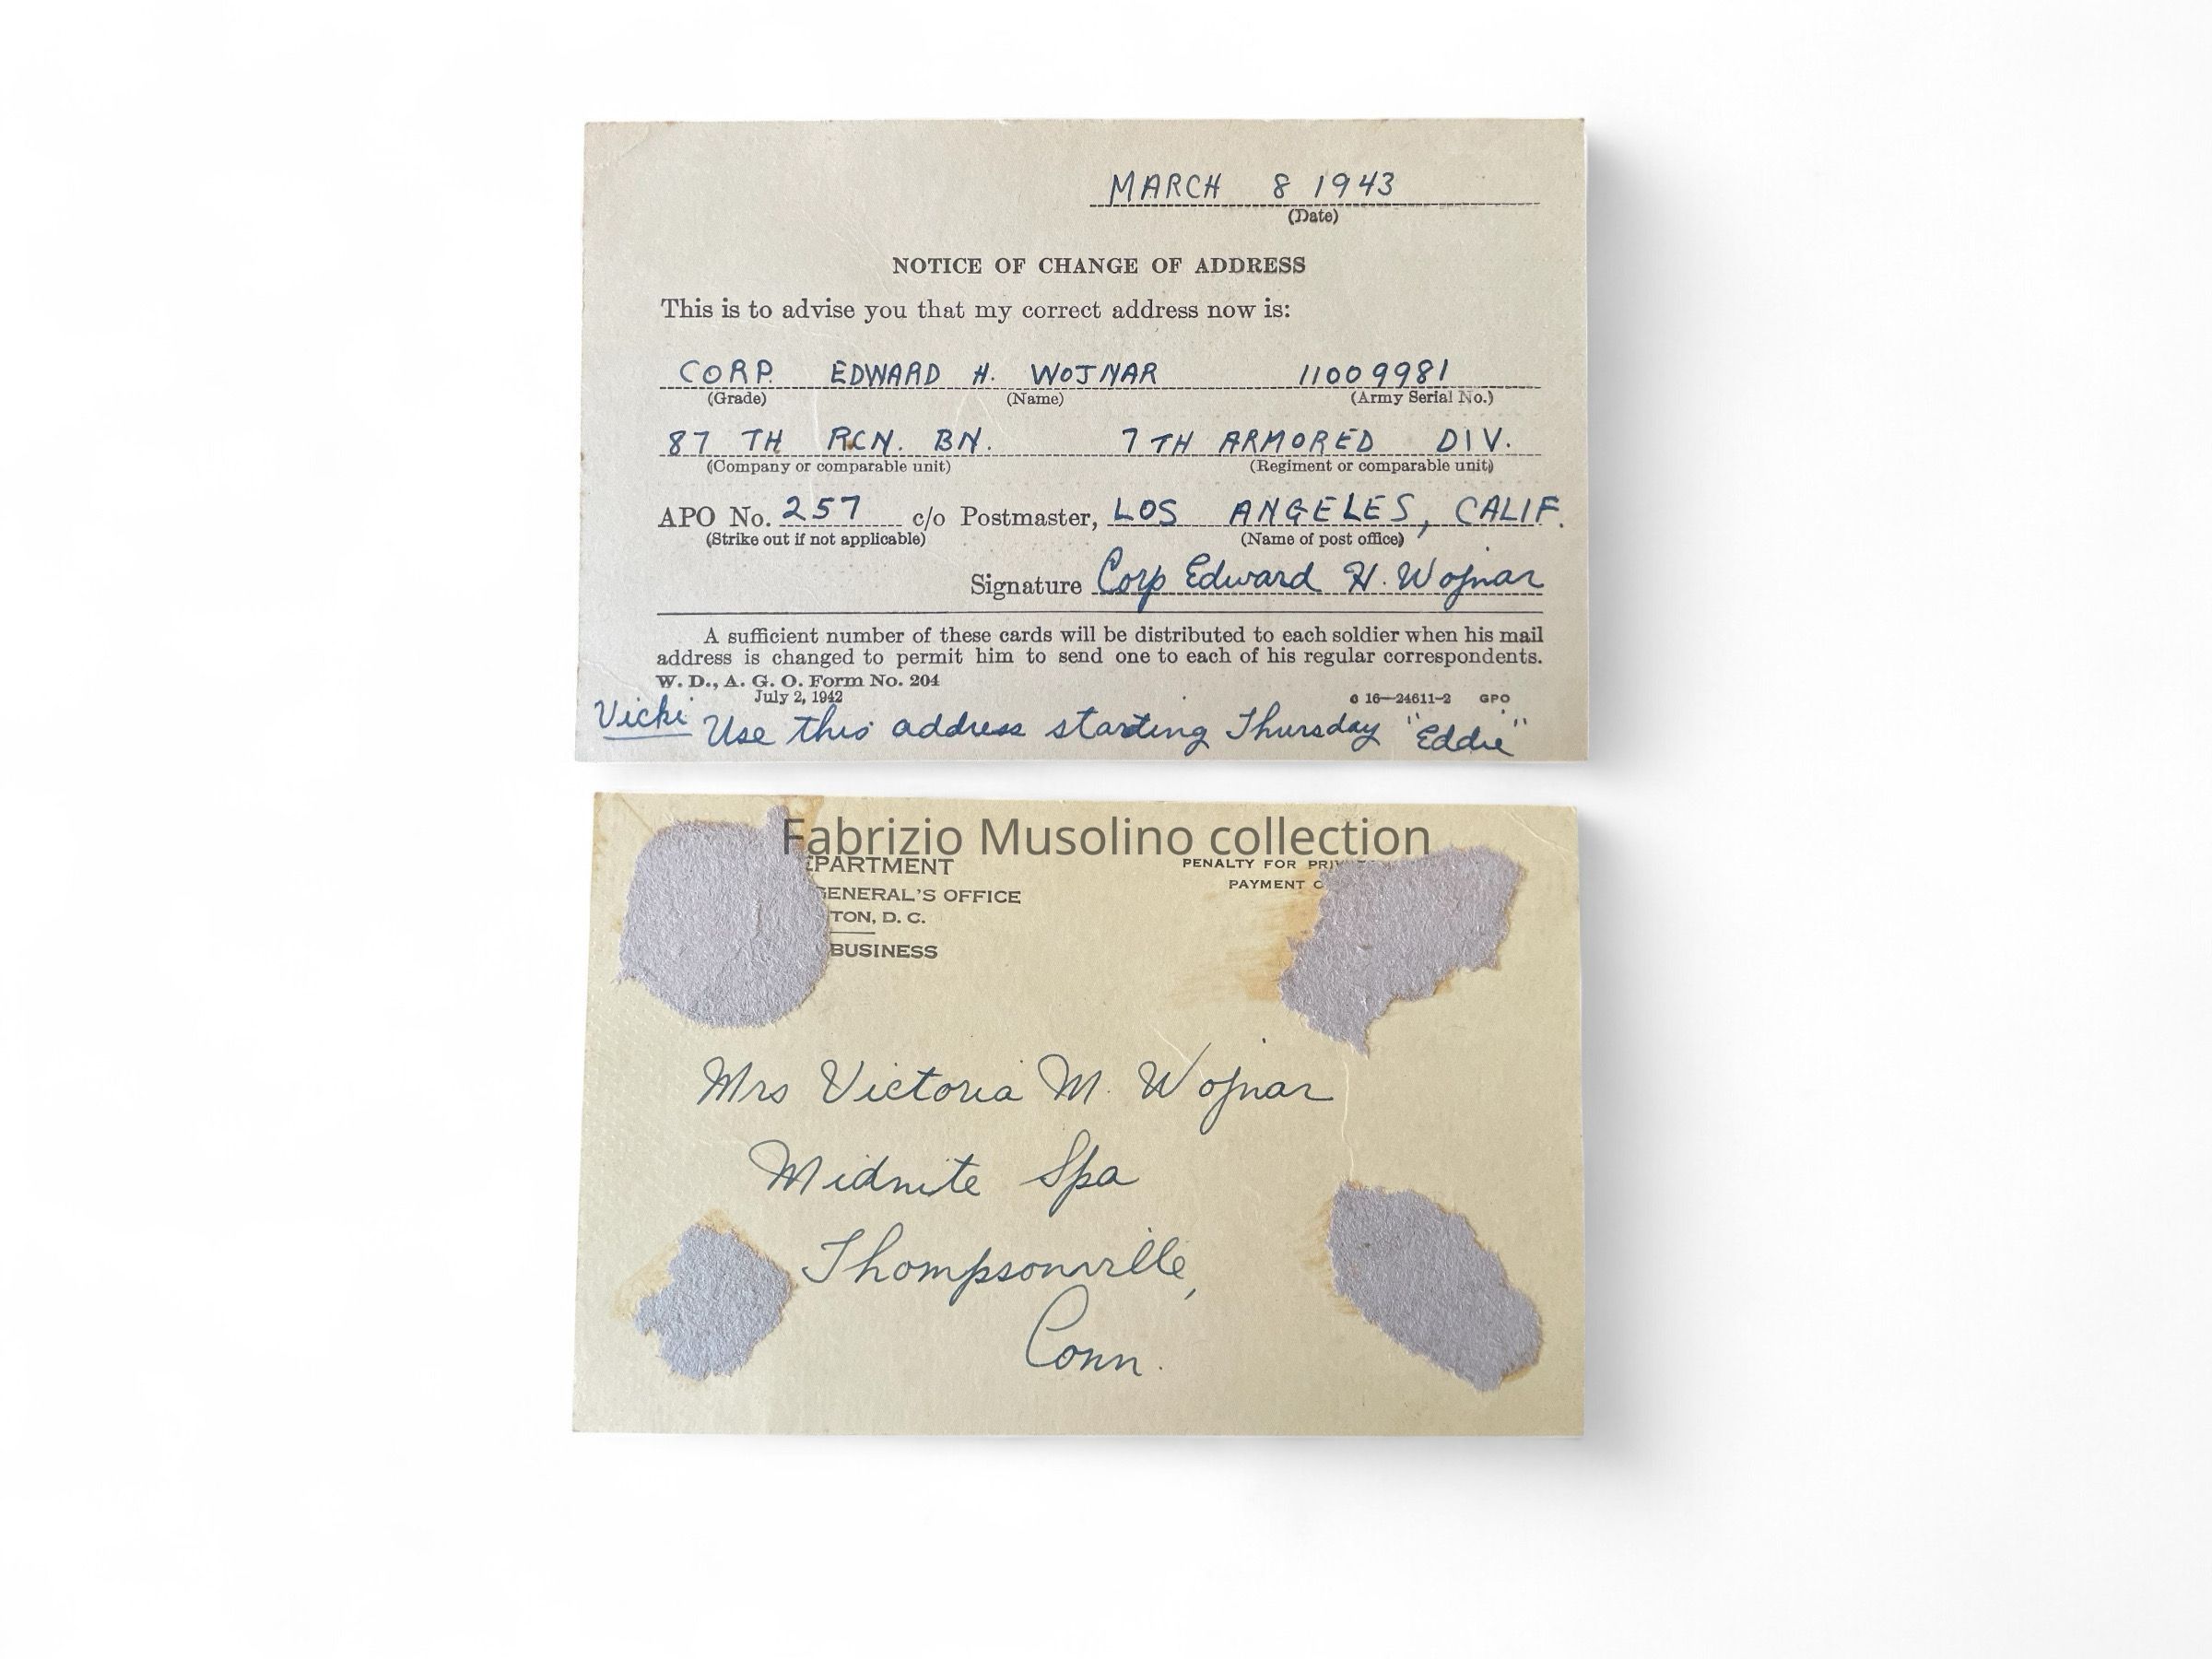 MARCH 8 1943
(Date)
NOTICE OF CHANGE OF ADDRESS
This is to advise you that my correct address now is:
CORP. EDWARD H. WOJNAR 11009981
(Grade) (Name) (Army Serial No.)
87 TH RCN. BN. 7 TH ARMORED DIV.
(Company or comparable unit) (Regiment or comparable unit)
APO No. 257 c/o Postmaster, LOS ANGELES, CALIF.
(Strike out if not applicable) (Name of post office)
Signature Corp Edward H. Wojnar
A sufficient number of these cards will be distributed to each soldier when his mail
address is changed to permit him to send one to each of his regular correspondents.
W. D., A. G. O. Form No. 204
July 2, 1942 16—24611-2 GPO
Vicki Use this address starting Thursday "Eddie"
Fabrizio Musolino collection
EPARTMENT PENALTY FOR
GENERAL'S OFFICE PAYMENT
TON, D. C.
BUSINESS
Mrs Victoria M. Wojnar
Midnite Spa
Thompsonville,
Conn.